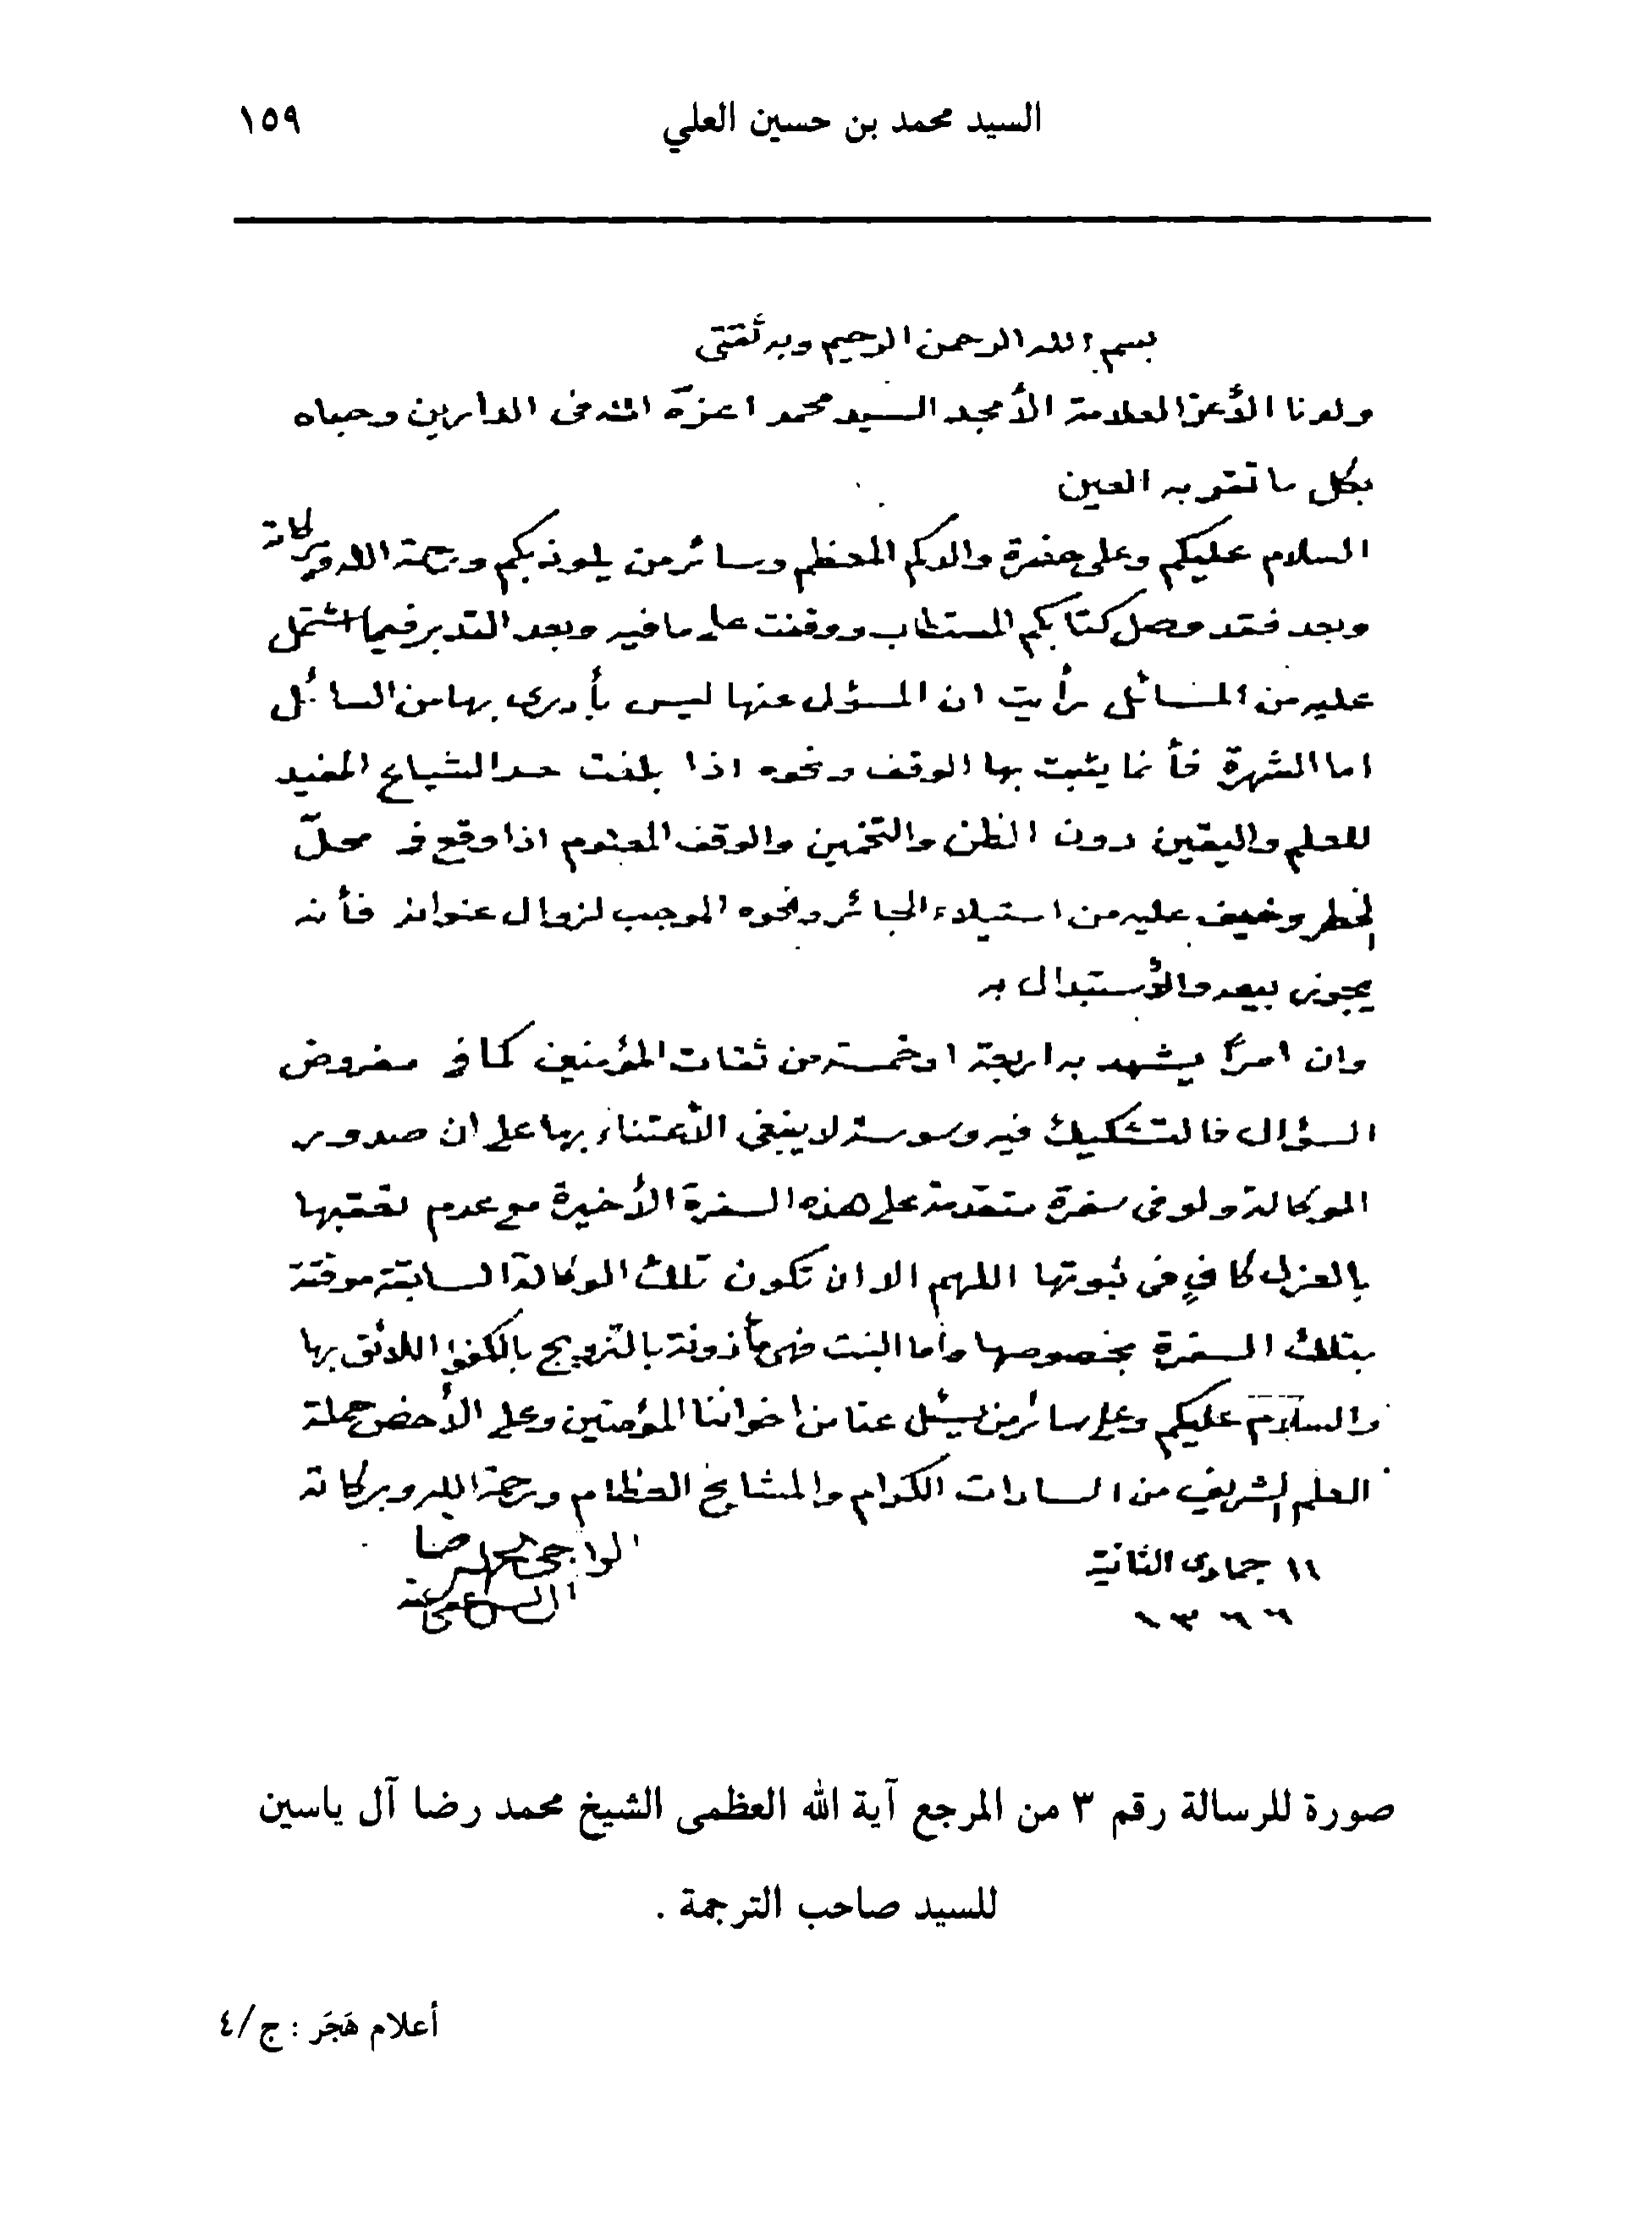 السيد محمد بن حسين العلي ١٥٩
بسم الله الرحمن الرحيم وبه ثقتي
ولدنا الأعز العلامة الأمجد السيد محمد اعزّه الله فى الدارين وحباه
بكل ما تقر به العين
السلام عليكم وعلى حضرة والدكم المعظم وسائر من يلوذ بكم ورحمة الله وبركاته
وبعد فقد وصل كتابكم المستطاب ووقفت على ما فيه وبعد التدبر فيما اشتمل
عليه من المسائل رأيت ان المسؤل عنها ليس بأدرى بها من السائل
اما الشهرة فأنما يثبت بها الوقف ونحوه اذا بلغت حد الشياع المفيد
للعلم واليقين دون الظن والتخمين والوقف المعلوم اذا وقع في محلّ
الخطر وخيف عليه من استيلاء الجائر ونحوه الموجب لزوال عنوانه فأنه
يجوز بيعه والأستبدال به
وان امراً يشهد به اربعة او خمسة من ثقات المؤمنين كما في مفروض
السؤال فالتشكيك فيه وسوسة لا ينبغى الأعتناء بها على ان صدور
الوكالة ولو فى سفرة متقدمة على هذه السفرة الأخيرة مع عدم تعقبها
بالعزل كافٍ فى ثبوتها اللهم الا ان تكون تلك الوكالة السابقة موقتة
بتلك السفرة بخصوصها واما البنت فهى مأذونة بالتزويج بالكفؤ اللائق بها
والسلام عليكم وعلى سائر من يسئل عنا من اخواننا المؤمنين وعلى الأخص حملة
العلم الشريف من السادات الكرام والمشايخ العظام ورحمة الله وبركاته
١١ جمادى الثانية
١٣٦٦
الراجي محمد رضا
آل يس عفي عنه
صورة للرسالة رقم ٣ من المرجع آية الله العظمى الشيخ محمد رضا آل ياسين
للسيد صاحب الترجمة .
أعلام هَجَر : ج/٤